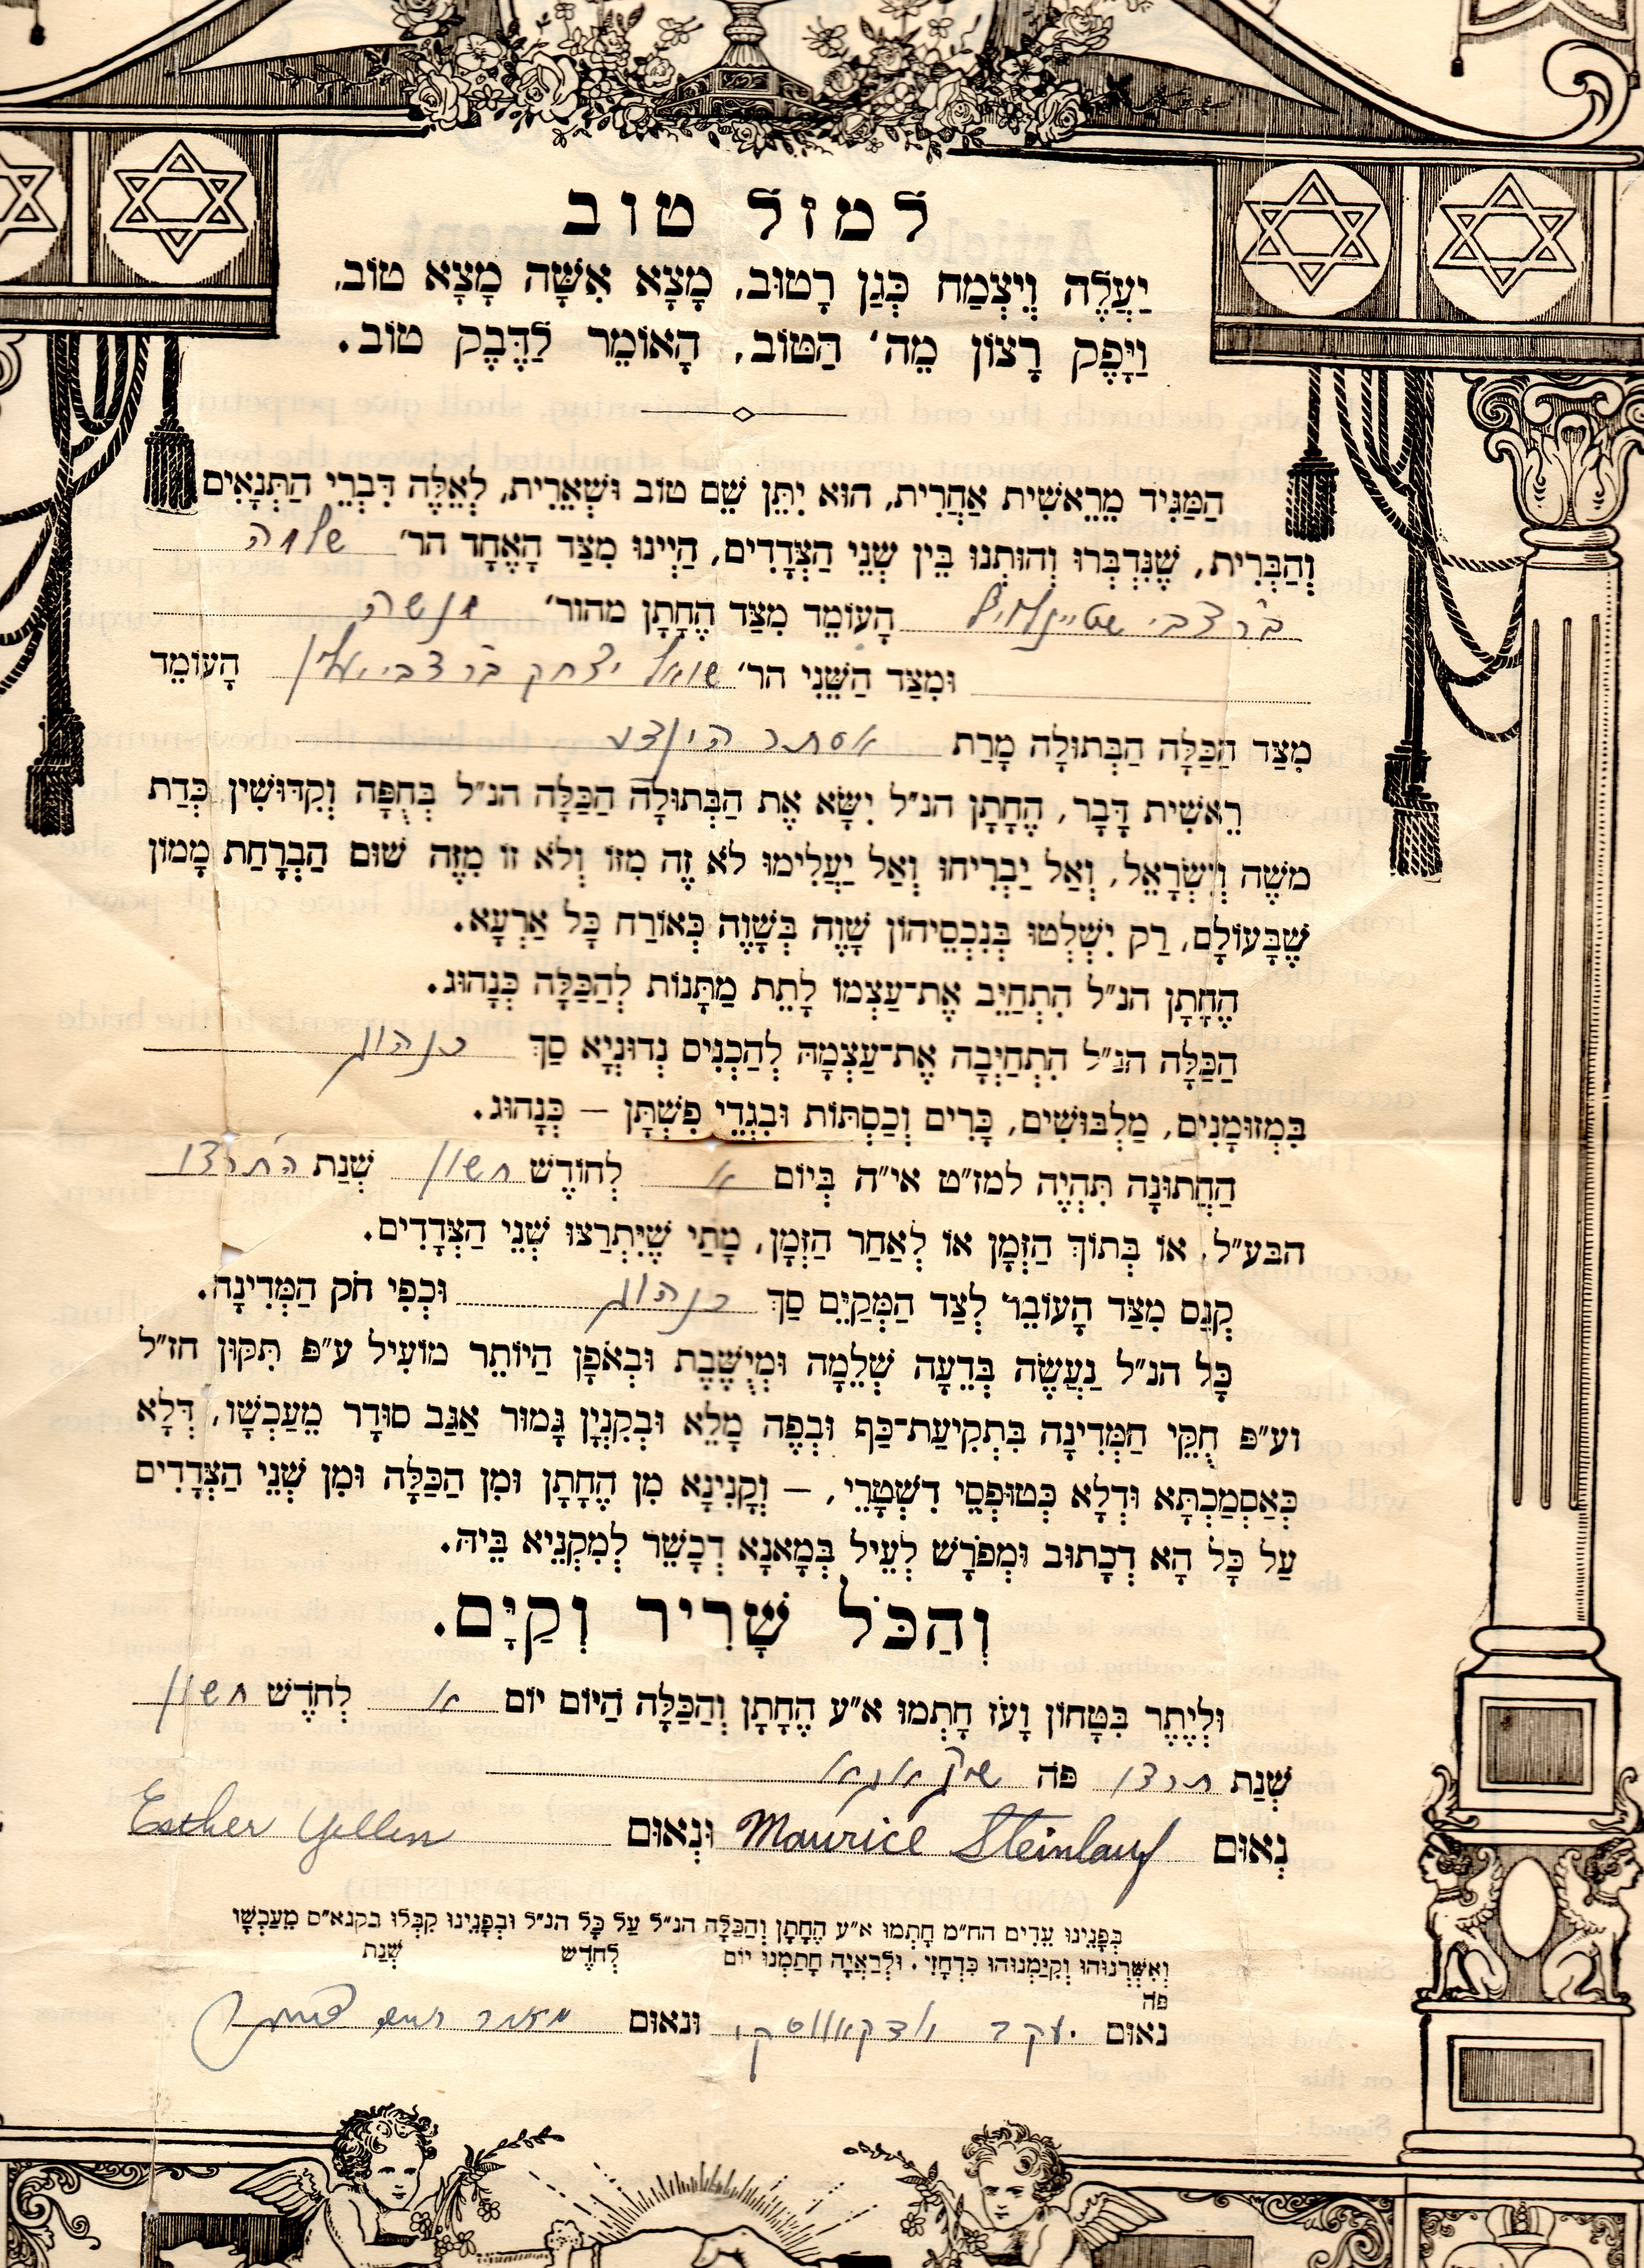 למזל טוב
יַעֲלֶה וְיִצְמַח כְּגַן רָטוּב, מָצָא אִשָּׁה מָצָא טוֹב,
וַיָּפֶק רָצוֹן מֵה׳ הַטּוֹב, הָאוֹמֵר לַדֶּבֶק טוֹב.
הַמַּגִּיד מֵרֵאשִׁית אַחֲרִית, הוּא יִתֵּן שֵׁם טוֹב וּשְׁאֵרִית, לְאֵלֶּה דִּבְרֵי הַתְּנָאִים
וְהַבְּרִית, שֶׁנִּדְבְּרוּ וְהוּתְנוּ בֵּין שְׁנֵי הַצְּדָדִים, הַיְינוּ מִצַּד הָאֶחָד הר׳ שלמה
ב״ר צבי שטיינלויף הָעוֹמֵד מִצַּד הֶחָתָן מהור׳ מנשה
וּמִצַּד הַשֵּׁנִי הר׳ שמואל יצחק ב״ר צבי יעלין הָעוֹמֵד
מִצַּד הַכַּלָּה הַבְּתוּלָה מָרַת אסתר הינדע
רֵאשִׁית דָּבָר, הֶחָתָן הנ״ל יִשָּׂא אֶת הַבְּתוּלָה הַכַּלָּה הנ״ל בְּחֻפָּה וְקִדּוּשִׁין כְּדַת
מֹשֶׁה וְיִשְׂרָאֵל, וְאַל יַבְרִיחוּ וְאַל יַעֲלִימוּ לֹא זֶה מִזּוֹ וְלֹא זוֹ מִזֶּה שׁוּם הַבְרָחַת מָמוֹן
שֶׁבָּעוֹלָם, רַק יִשְׁלְטוּ בְּנִכְסֵיהוֹן שָׁוֶה בְּשָׁוֶה כְּאוֹרַח כָּל אַרְעָא.
הֶחָתָן הנ״ל הִתְחַיֵּב אֶת־עַצְמוֹ לָתֵת מַתָּנוֹת לְהַכַּלָּה כְּנָהוּג.
הַכַּלָּה הנ״ל הִתְחַיְּבָה אֶת־עַצְמָהּ לְהַכְנִים נְדוּנְיָא סַךְ כנהוג
בִּמְזוּמָנִים, מַלְבּוּשִׁים, כָּרִים וְכַסְתּוֹת וּבִגְדֵי פִּשְׁתָּן — כְּנָהוּג.
הַחֲתוּנָה תִּהְיֶה למז״ט אי״ה בְּיוֹם א לְחוֹדֶשׁ חשון שְׁנַת התרצו
הבע״ל, אוֹ בְּתוֹךְ הַזְּמָן אוֹ לְאַחַר הַזְּמָן, מָתַי שֶׁיִּתְרַצּוּ שְׁנֵי הַצְּדָדִים.
קְנָס מִצַּד הָעוֹבֵר לְצַד הַמְּקַיֵּם סַךְ כנהוג וּכְפִי חֹק הַמְּדִינָה.
כָּל הנ״ל נַעֲשֶׂה בְּדֵעָה שְׁלֵמָה וּמְיֻשֶּׁבֶת וּבְאֹפָן הַיּוֹתֵר מוֹעִיל ע״פּ תִּקּוּן חז״ל
וע״פּ חֻקֵּי הַמְּדִינָה בִּתְקִיעַת־כַּף וּבְפֶה מָלֵא וּבְקִנְיָן גָּמוּר אַגַּב סוּדָר מֵעַכְשָׁו, דְּלָא
כְּאַסְמַכְתָּא וּדְלָא כְּטוּפְסֵי דִשְׁטָרֵי, — וְקָנִינָא מִן הֶחָתָן וּמִן הַכַּלָּה וּמִן שְׁנֵי הַצְּדָדִים
עַל כָּל הָא דְכָתוּב וּמְפֹרָשׁ לְעֵיל בְּמָאנָא דְכָשֵׁר לְמִקְנֵיא בֵּיהּ.
וְהַכֹּל שָׁרִיר וְקַיָּם.
וּלְיֶתֶר בִּטָּחוֹן וָעֹז חָתְמוּ א״ע הֶחָתָן וְהַכַּלָּה הַיּוֹם יוֹם א לְחֹדֶשׁ חשון
שְׁנַת תרצו פֹּה שיקאגא
נְאוּם Maurice Steinlauf וּנְאוּם Esther Yellen
בְּפָנֵינוּ עֵדִים הח״מ חָתְמוּ א״ע הֶחָתָן וְהַכַּלָּה הנ״ל עַל כָּל הנ״ל וּבְפָנֵינוּ קִבְּלוּ בקנא״ס מֵעַכְשָׁו
וְאִשַּׁרְנוּהוּ וְקִיַּמְנוּהוּ כִּדְחָזִי. וּלְרַאְיָה חָתַמְנוּ יוֹם לְחֹדֶשׁ שְׁנַת
פה
נאום יעקב ונאום